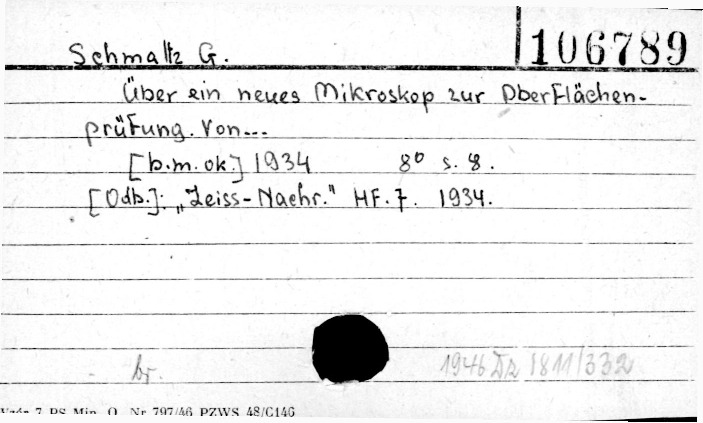 Schmaltz G. 106789
Über ein neues Mikroskop zur Oberflächen-
prüfung. Von...
[b.m.ok.] 1934 8° s. 8.
[Odb.]: „Zeiss-Nachr." HF. 7. 1934.
br. 1946 Dz 1811/332
Wzór 7 PS Min. O. Nr 797/46 PZWS 48/C146